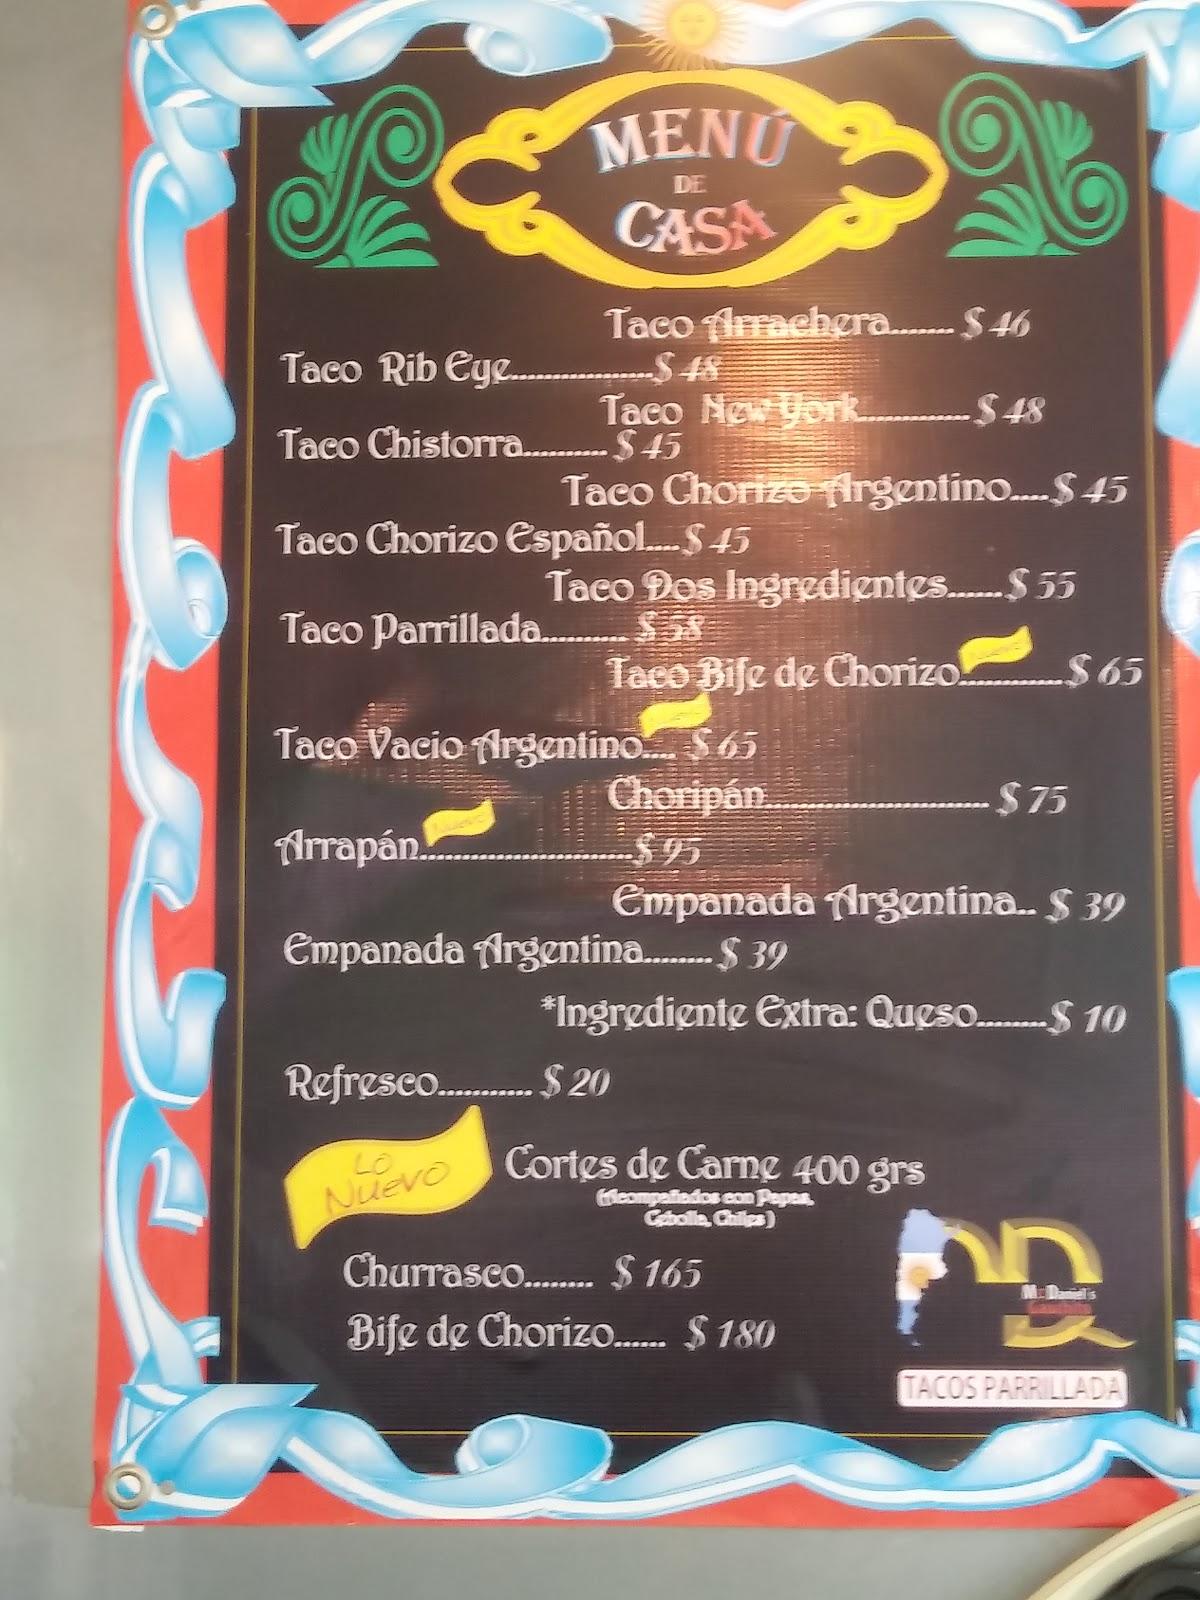 MENÚ
DE
CASA
Taco Arrachera....... $ 46
Taco Rib Eye................$ 48
Taco New York............ $ 48
Taco Chistorra.......... $ 45
Taco Chorizo Argentino....$ 45
Taco Chorizo Español....$ 45
Taco Dos Ingredientes......$ 55
Taco Parrillada.......... $ 58
Nuevo
Taco Bife de Chorizo............$ 65
Nuevo
Taco Vacio Argentino.... $ 65
Choripán......................... $ 75
Nuevo
Arrapán........................$ 95
Empanada Argentina.. $ 39
Empanada Argentina........ $ 39
*Ingrediente Extra: Queso........$ 10
Refresco........... $ 20
LO
NUEVO
Cortes de Carne 400 grs
(Acompañados con Papas,
Cebolla, Chiles )
Churrasco........ $ 165
Bife de Chorizo...... $ 180
McDaniel's
Gauchito
TACOS PARRILLADA